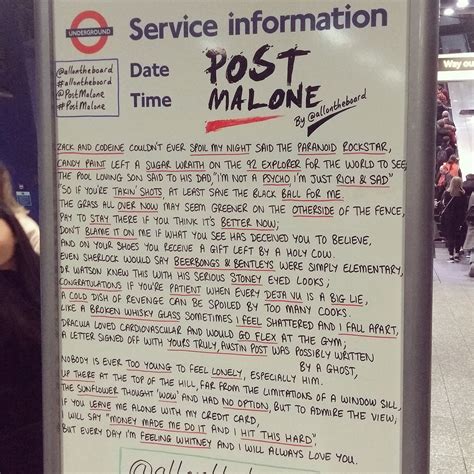 UNDERGROUND
Service information
@allontheboard
#allontheboard
@PostMalone
#PostMalone
Date
Time
POST
MALONE
By @allontheboard
Way ou
ZACK AND CODEINE COULDN'T EVER SPOIL MY NIGHT SAID THE PARANOID ROCKSTAR,
CANDY PAINT LEFT A SUGAR WRAITH ON THE 92 EXPLORER FOR THE WORLD TO SEE,
THE POOL LOVING SON SAID TO HIS DAD "I'M NOT A PSYCHO I'M JUST RICH & SAD"
"SO IF YOU'RE TAKIN' SHOTS, AT LEAST SAVE THE BLACK BALL FOR ME.
THE GRASS ALL OVER NOW MAY SEEM GREENER ON THE OTHERSIDE OF THE FENCE,
PAY TO STAY THERE IF YOU THINK IT'S BETTER NOW;
DON'T BLAME IT ON ME IF WHAT YOU SEE HAS DECEIVED YOU TO BELIEVE,
AND ON YOUR SHOES YOU RECEIVE A GIFT LEFT BY A HOLY COW.
EVEN SHERLOCK WOULD SAY BEERBONGS & BENTLEYS WERE SIMPLY ELEMENTARY,
DR WATSON KNEW THIS WITH HIS SERIOUS STONEY EYED LOOKS;
CONGRATULATIONS IF YOU'RE PATIENT WHEN EVERY DEJA VU IS A BIG LIE,
A COLD DISH OF REVENGE CAN BE SPOILED BY TOO MANY COOKS.
LIKE A BROKEN WHISKY GLASS SOMETIMES I FEEL SHATTERED AND I FALL APART,
DRACULA LOVED CARDIOVASCULAR AND WOULD GO FLEX AT THE GYM;
A LETTER SIGNED OFF WITH YOURS TRULY, AUSTIN POST WAS POSSIBLY WRITTEN
BY A GHOST,
NOBODY IS EVER TOO YOUNG TO FEEL LONELY, ESPECIALLY HIM.
UP THERE AT THE TOP OF THE HILL, FAR FROM THE LIMITATIONS OF A WINDOW SILL,
THE SUNFLOWER THOUGHT 'WOW' AND HAD NO OPTION, BUT TO ADMIRE THE VIEW;
IF YOU LEAVE ME ALONE WITH MY CREDIT CARD,
I WILL SAY "MONEY MADE ME DO IT AND I HIT THIS HARD",
BUT EVERY DAY I'M FEELING WHITNEY AND I WILL ALWAYS LOVE YOU.
@allontheboard